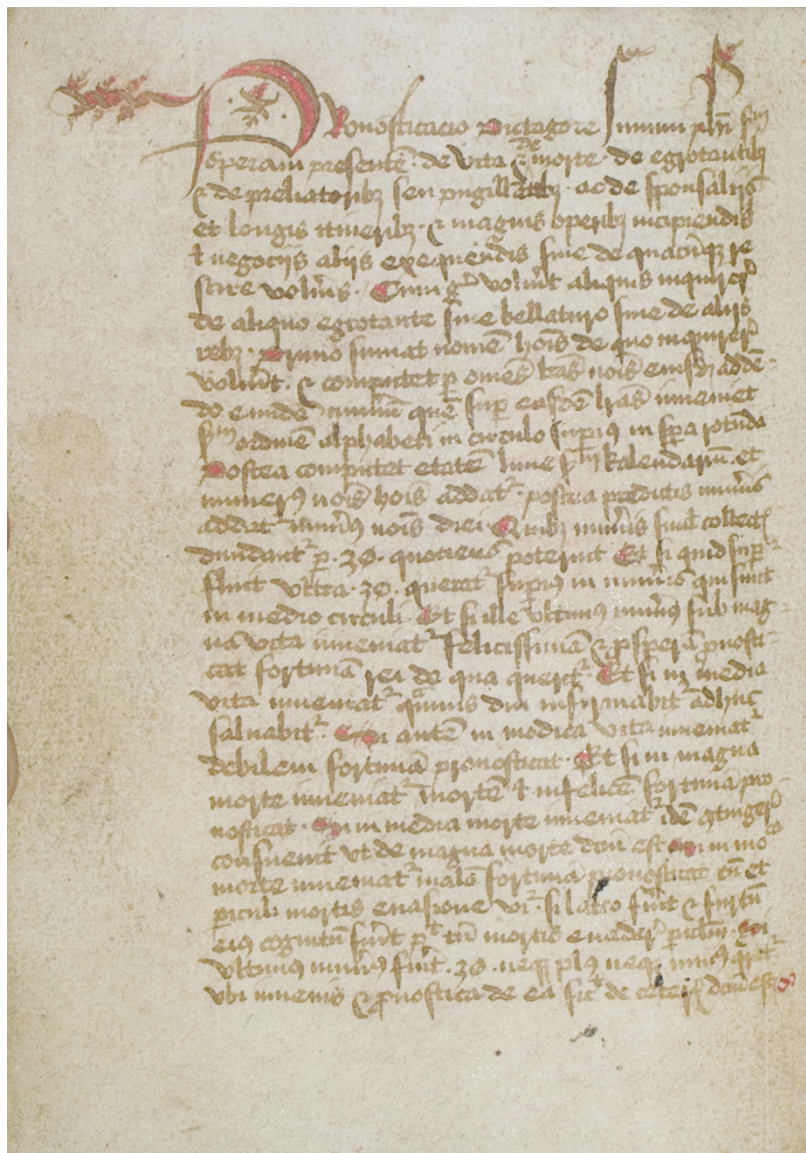 Pronosticacio Pictagore summi phi sm
speram presente · de vita & de morte · de egrotantibꝫ
& de preliatoribꝫ seu pugillatibꝫ · ac de sponsaliis
et longis itineribꝫ · & magnis operibꝫ incipiendis
t negociis aliis exequendis siue de quacūqꝫ re
scire volūis · Cum gͦ volūit aliquis inquirere
de aliquo egrotante siue bellaturo siue de aliis
rebꝫ · Primo sumat nomē hoīs de quo inquirere
voluīt · & computet p omēs lrās noīs eiusdē addē-
do eundē numū quē sup easdē lrās inueniet
sm ordinē alphabeti in circulo supius in spa rotūda
Postea computet etatē lune sm kalendariū · et
numerꝯ noīs hoīs addat · postea predictis numīs
addat numꝯ noīs diei · Quibꝫ numīs simul collectꝭ
diuidant p · 30 · quotiens poterint Et si quid sup
fūit vltra · 30 · querat supius in numīs qui sunt
in medio circuli · Et si ille vltimꝯ numꝯ sub mag-
na vita inueniat felicissimā & prosperā pnosti-
cat fortunā rei de qua querit · Et si in media
vita inueniat quāuis diu infirmabit adhuc
saluabit · Si autē in modica vita inueniat
debilem fortunā pronosticat · Et si in magna
morte inueniat mortē t infelicē fortunā pro-
nosticat · Si in media morte inueniat idē ꝯtingere
consueuit vt de magna morte dcm est Si in moca
morte inueniat malā fortunā pronosticat cū et
piculi mortis euasione vt · si latro fūit & furtū
eiꝯ cognitū fūit pt tn mortis euadere piclm · Si
vltimꝯ numꝯ fūit · 30 · neqꝫ plꝯ neqꝫ minꝯ querat
vbi inuenis & pronostica de ea sic de ceteris dcm est